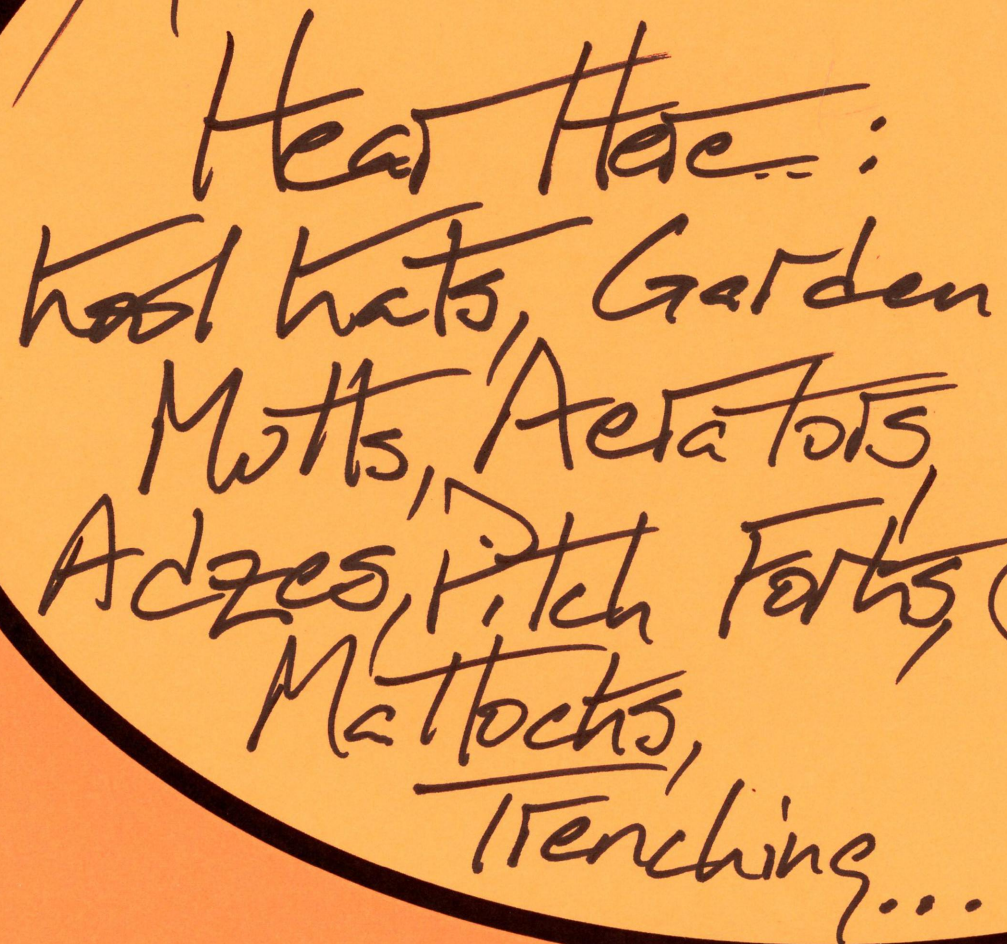 Hear Here :
Kool Kats, Garden
Mutts, Aerators,
Adzes, Pitch Forks,
Mattocks,
Trenching...